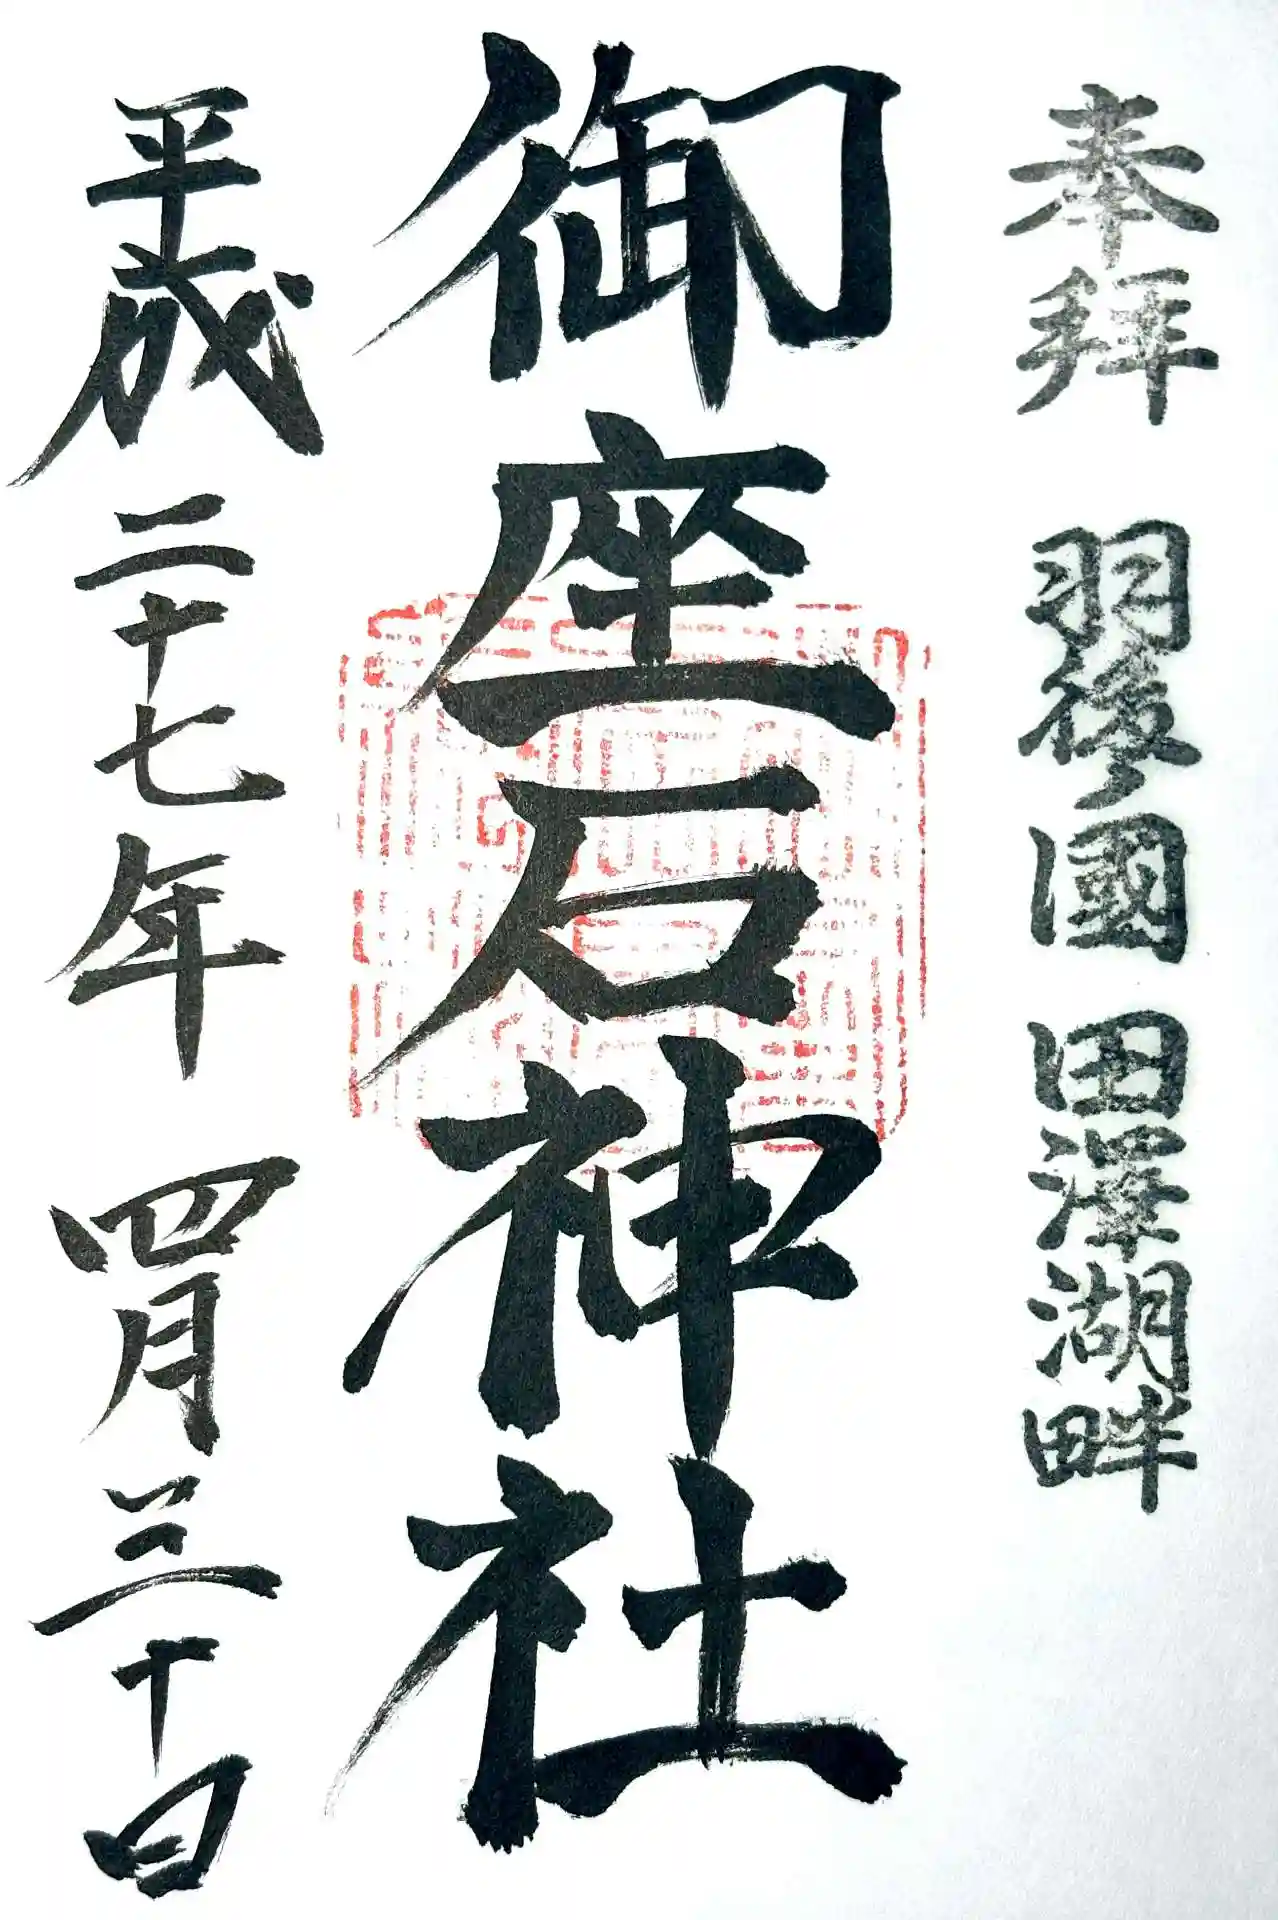 奉拝 羽後國 田澤湖畔
御座石神社
平成二十七年 四月三十日